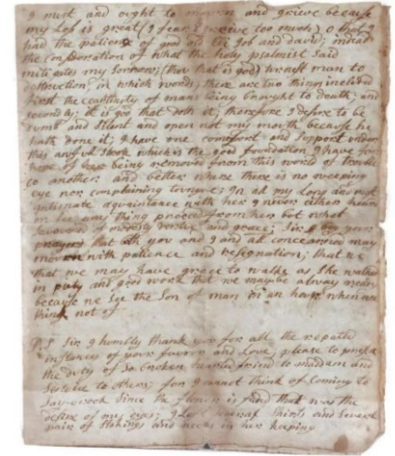 I must and ought to mourn and grieve because
my Loss is great (I fear I grieve too much) o that I
had the patience of god as did Job and david; indeed
the Consideration of what the holy psalmist said
mitigates my Sorrows; (thou that is god) turnest man to
destruction, in which words there are two things included
first the certainty of mans being brought to death; and
secondly; it is god that doth it; therefore I desire to be
dumb and silent and open not my mouth because he
hath done it; I have one comfort and support under
this awful stroke which is the good foundation I have for
hope of her being removed from this world of trouble
to another and better where there is no weeping
eye nor complaining tongue; In all my Long and most
intimate aquaintance with her I never either heard
or saw any thing proceed from her but what
savoured of modesty vertue and grace; Sir I beg your
prayers that both you and I and all concerned may
mourn with patience and resignation; that we
that we may have grace to walk as she walked
in piety and good work that we may be always ready
because we See the Son of man in an hour when we
think not of
P.S Sir I humbly thank you for all the repeated
instances of your favour and Love, please to
the duty of broken hearted friend to madam and
service to; for I cannot think of coming to
Say-brook Since the flower is faded that was the
desire of my eyes; I Left several Shirts and several
pair of Stokings and in her keeping